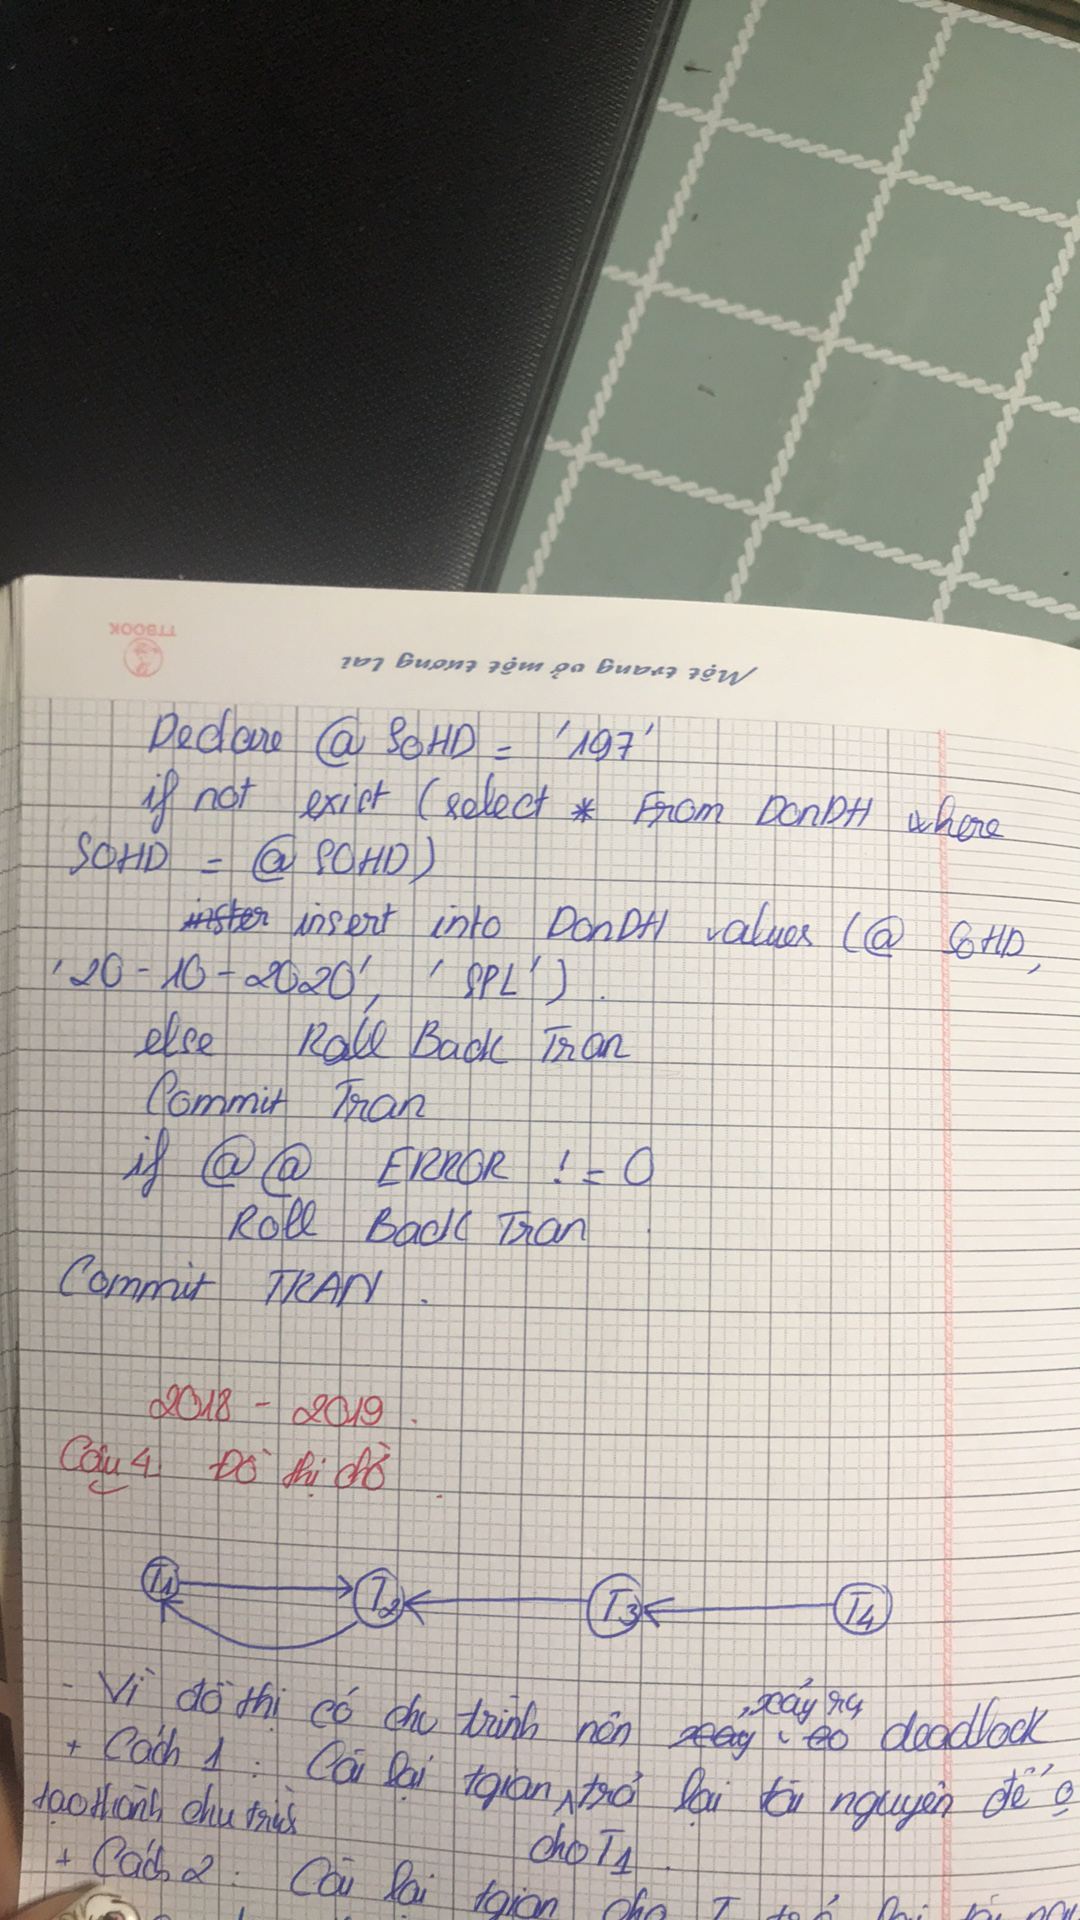 TTBOOK
Một trang vở một tương lai
Declare @ SOHD = '197'
if not exist (select * From DonDH where
SOHD = @ SOHD)
inster insert into DonDH values (@ SOHD,
'20-10-2020', 'SPL').
else Roll Back Tran
Commit Tran
if @@ ERROR != 0
Roll Back Tran
Commit TRAN.
2018 - 2019.
Câu 4. Đồ thị đồ
T1 T2 T3 T4
- Vì đồ thị có chu trình nên xảy ra deadlock
+ Cách 1: Cài lại tgian, trả lại tài nguyên để
tạo thành chu trình
cho T1.
+ Cách 2: Cài lại tgian cho T